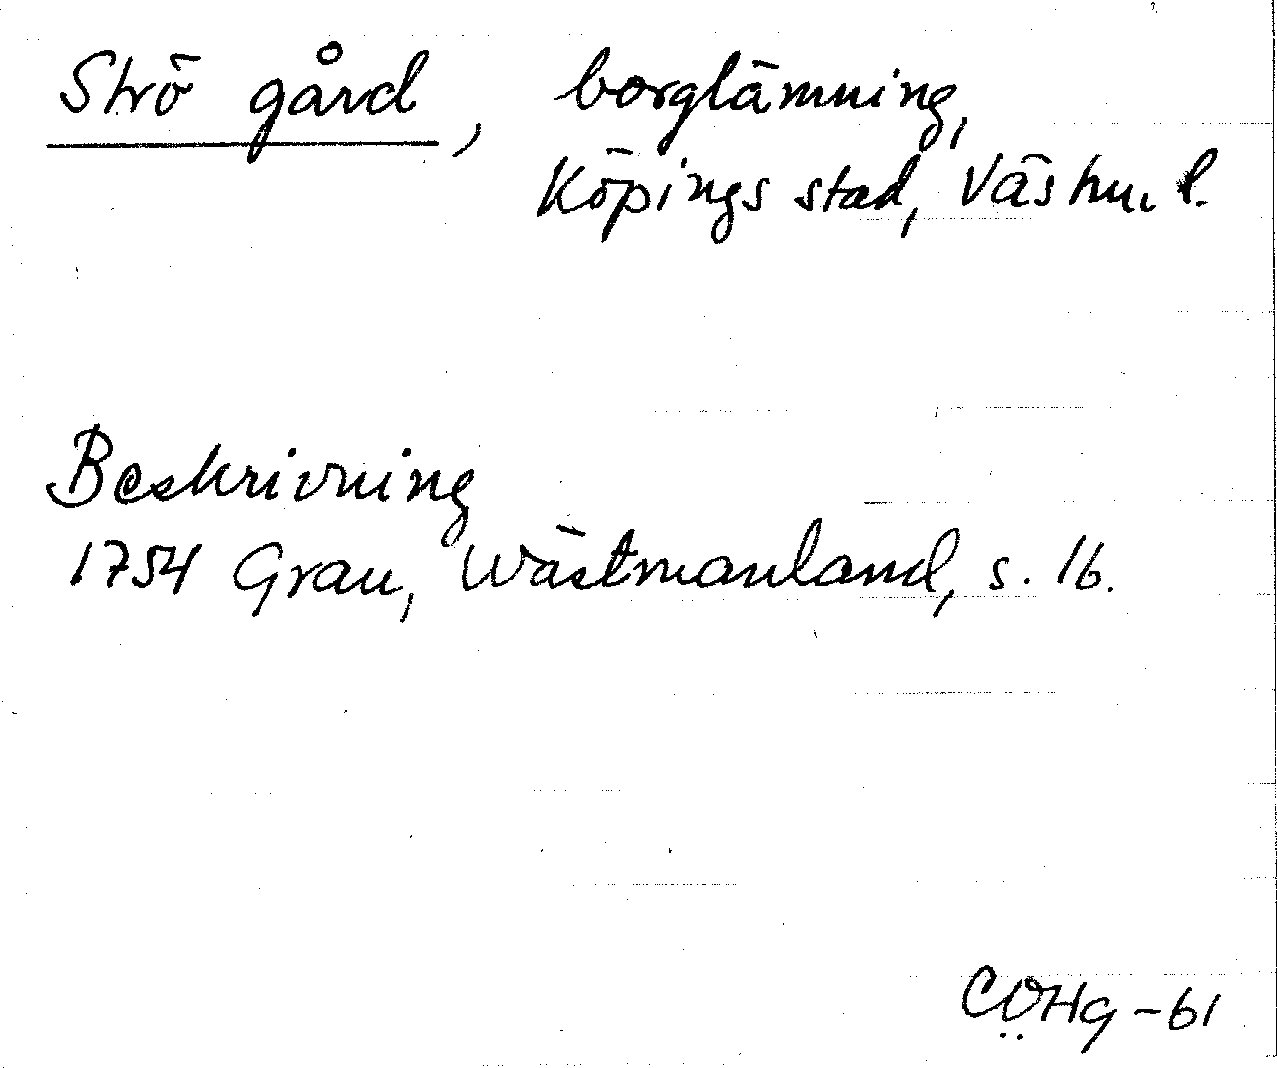 Strö gård, borglämning,
Köpings stad, Västm. l.
Beskrivning
1754 Grau, Wästmanland, s. 16.
CÖHg-61